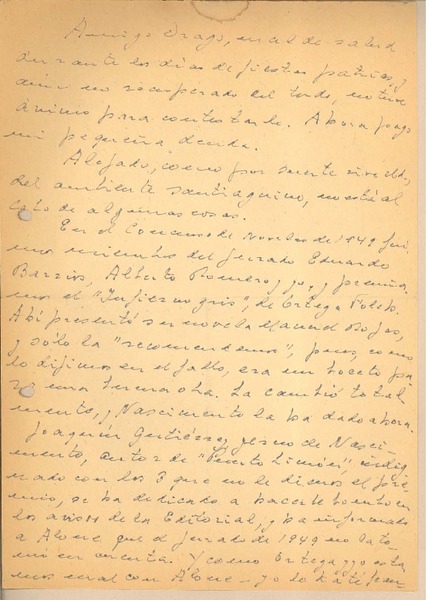 Amigo Drago, mal de salud
durante los días de fiestas patrias, y
aún no recuperado del todo, no tuve
ánimo para contestarle. Ahora pago
mi pequeña deuda.
Alejado, como por suerte vive Ud.,
del ambiente santiaguino, no está al
cabo de algunas cosas.
En el Concurso de novelas de 1949 fui
mos miembros del jurado Eduardo
Barrios, Alberto Romero y yo, y premia
mos el "Infierno gris", de Ortega Folch.
Ahí presentó su novela Manuel Rojas,
y sólo la "recomendamos", pues, como
lo dijimos en el fallo, era un boceto pa
ra una buena obra. La cambió total
mente, y Nascimento la ha dado ahora.
Joaquín Gutiérrez, yerno de Nasci-
mento, autor de "Puerto Limón", indig
nado con los 3 que no le dimos el pre
mio, se ha dedicado a hacerle bombo en
los avisos de la Editorial, y ha informado
a Alone que el jurado de 1949 no la to-
mó en cuenta. Y como Ortega y yo esta
mos mal con Alone — yo lo